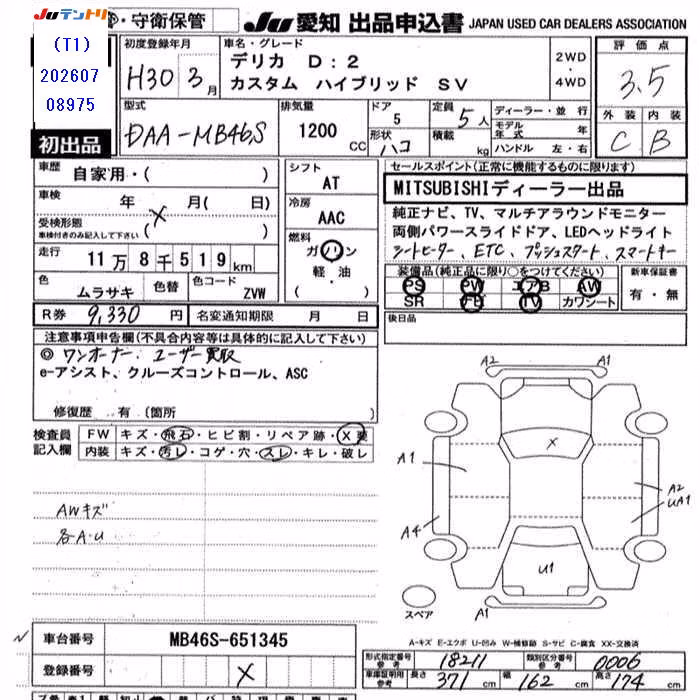 Juテントリ
・守衛保管
Ju 愛知 出品申込書 JAPAN USED CAR DEALERS ASSOCIATION
(T1)
202607
08975
初出品
初度登録年月
H30 3月
車名・グレード
デリカ D:2
カスタム ハイブリッド SV
2WD
・
4WD
評価点
3.5
外装 内装
C B
型式
DAA-MB46S
排気量
1200 CC
ドア
5
形状
ハコ
定員
5人
積載
kg
ディーラー・並行
モデル年式 年
ハンドル 左・右
車歴
自家用・( )
車検
年 月( 日)
受検形態
車検付きのみ記入して下さい
( X )
走行
11万8千519km
色
ムラサキ
色替
色コード
ZVW
シフト
AT
冷房
AAC
燃料
ガソリン
軽・油
( )
セールスポイント(正常に機能するものに限ります)
MITSUBISHIディーラー出品
純正ナビ、TV、マルチアラウンドモニター
両側パワースライドドア、LEDヘッドライト
シートヒーター、ETC、プッシュスタート、スマートキー
装備品(純正品に限り○をつけてください)
PS PW エアB AW
SR TV カワシート
新車保証書
有・無
後日品
R券 9,330 円 名変通知期限 月 日
注意事項申告欄(不具合内容等は具体的に記入して下さい)
◎ワンオーナー、ユーザー買取
e-アシスト、クルーズコントロール、ASC
修復歴 有(箇所 )
検査員
記入欄
FW キズ・飛石・ヒビ割・リペア跡・X要
内装 キズ・汚レ・コゲ・穴・スレ・キレ・破レ
AWキズ
各A・U
A2 A1
X
A1
A2
UA1
A4
U1
スペア
A1
A-キズ E-エクボ U-凹み W-補修跡 S-サビ C-腐食 XX-交換済
車台番号 MB46S-651345
登録番号 X
形式指定番号
参考
18211
類別区分番号
参考
0006
車庫証明用
参考
長さ 371 cm 幅 162 cm 高さ 174 cm